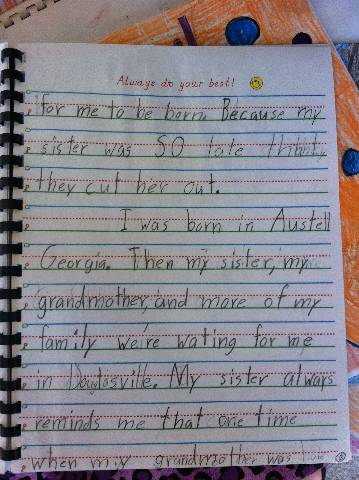 Always do your best!
for me to be born. Because my
sister was SO late thhat,
they cut her out.
I was born in Austell
Georgia. Then my sister, my
grandmother, and more of my
family we're wating for me
in Douglosville. My sister alwars
reminds me that one time
when my grandmother was